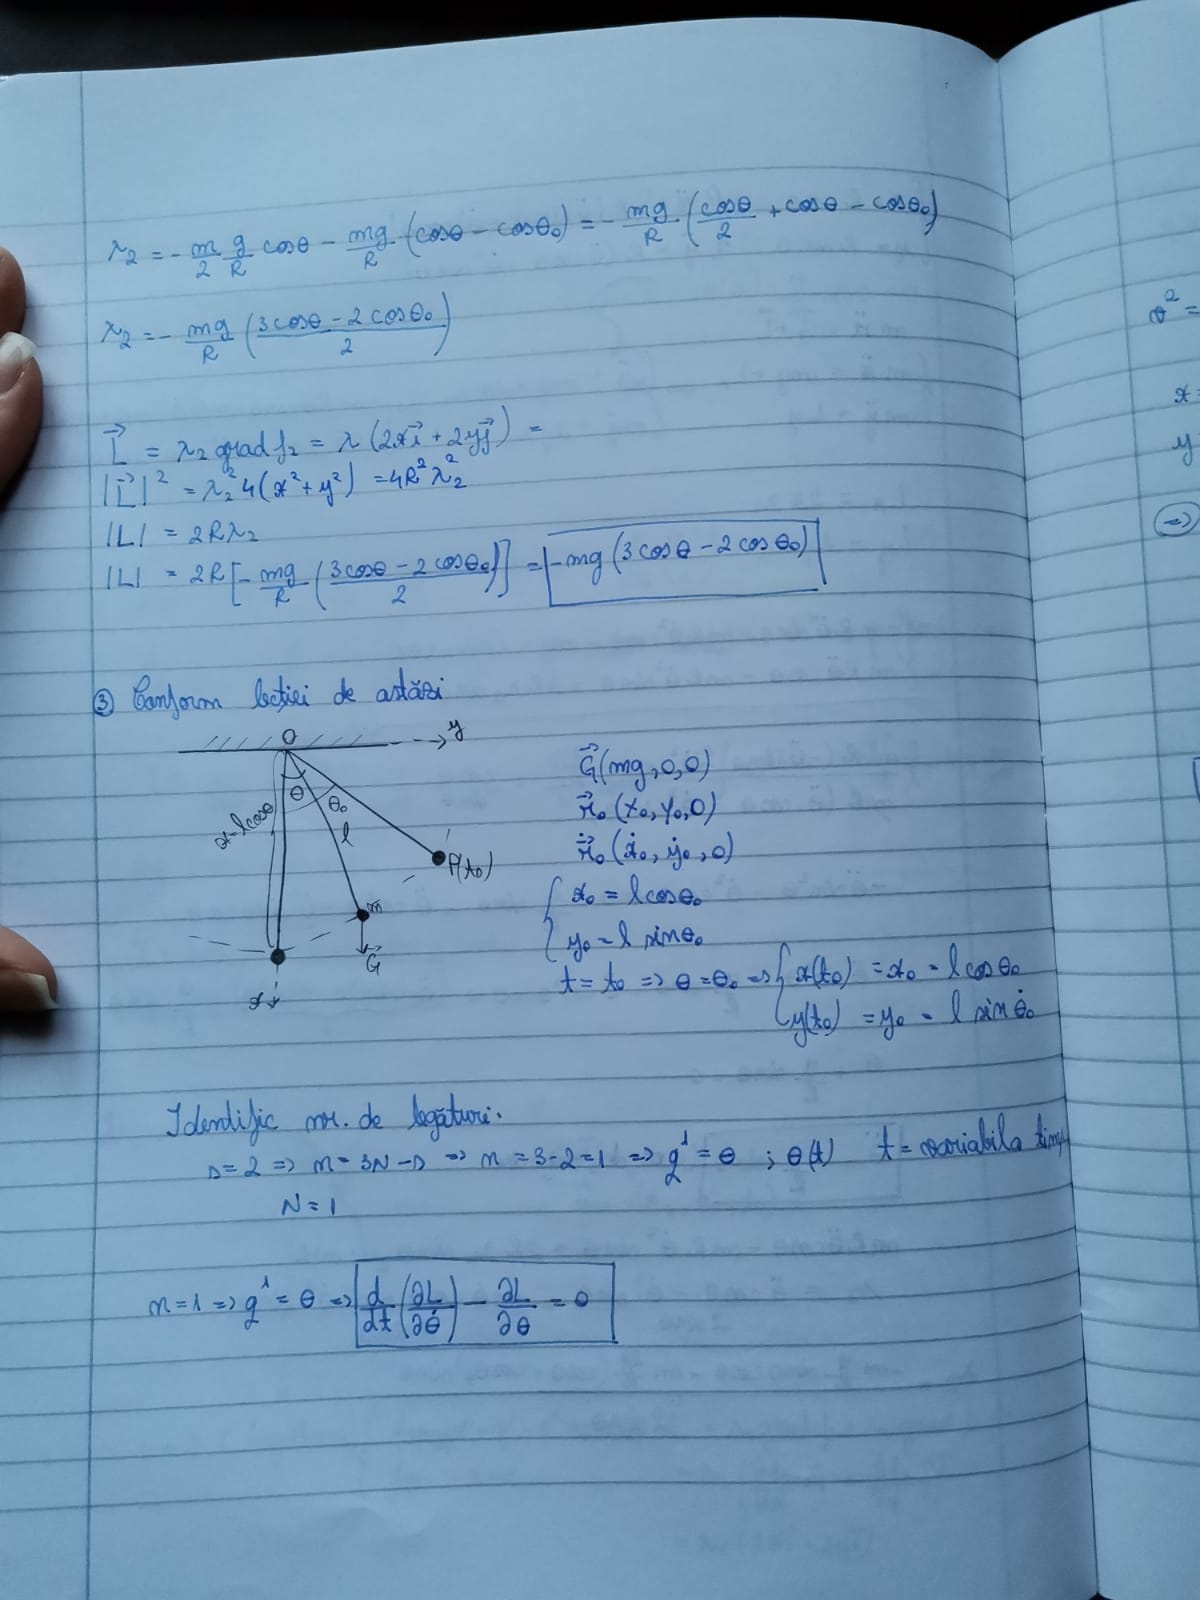 λ₂ = - m/2 g/R cosθ - mg/R (cosθ - cosθ₀) = - mg/R (cosθ/2 + cosθ - cosθ₀)
λ₂ = - mg/R ((3cosθ - 2cosθ₀)/2)
L⃗ = λ₂ grad f₂ = λ (2xi⃗ + 2yj⃗) =
|L⃗|² = λ₂² 4(x² + y²) = 4R²λ₂²
|L| = 2Rλ₂
|L| = 2R [- mg/R ((3cosθ - 2cosθ₀)/2)] = -mg(3cosθ - 2cosθ₀)
③ Conform lecției de astăzi
O
y
θ
θ₀
x = l cosθ
l
P(t₀)
m
G⃗
x
G⃗(mg,0,0)
r⃗₀(x₀,y₀,0)
ṙ⃗₀(ẋ₀,ẏ₀,0)
{ x₀ = l cosθ₀
y₀ = l sinθ₀
t = t₀ => θ = θ₀ => { x(t₀) = x₀ = l cosθ₀
y(t₀) = y₀ = l sinθ₀
Identific nr. de legături.
s = 2 => n = 3N - s => n = 3-2 = 1 => q¹ = θ ; θ(t) t = variabila timp
N = 1
n = 1 => q¹ = θ => d/dt (∂L/∂θ̇) - ∂L/∂θ = 0
v² =
x =
y
=>